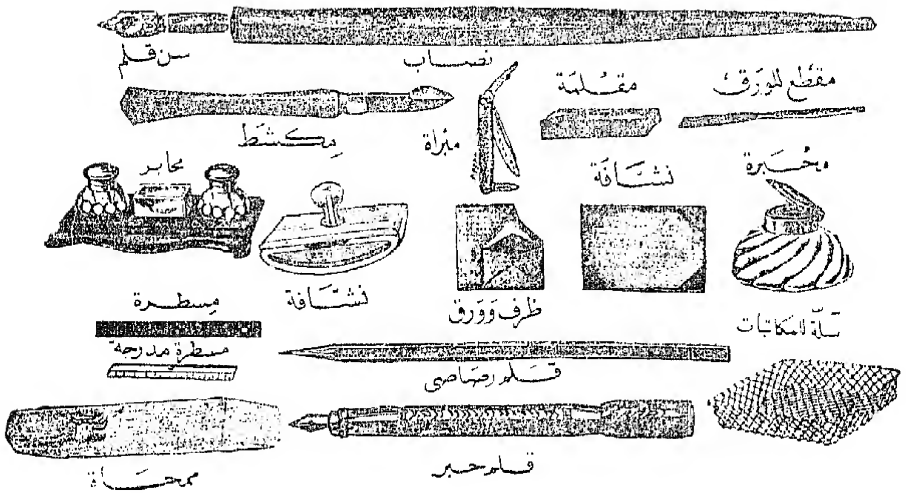 سن قلم
نصاب
مقطع للورق
مقلمة
مبراة
مكشط
محبرة
نشافة
محابر
نشافة
ظرف وورق
سلة للمكاتبات
مسطرة
مسطرة مدرجة
قلم رصاصى
قلم حبر
ممحاة